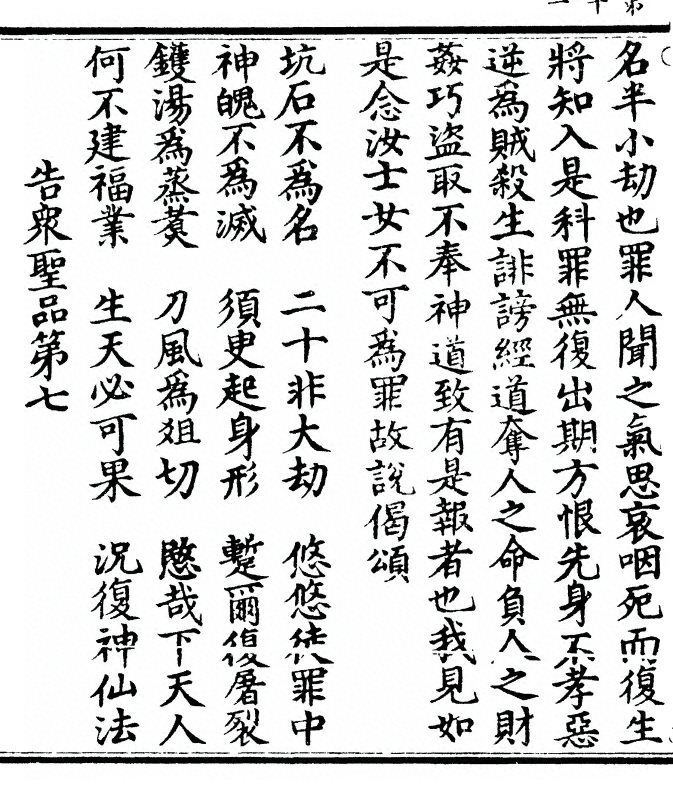 第十一
名半小劫也罪人聞之氣思哀咽死而復生
將知入是科罪無復出期方恨先身不孝惡
逆為賊殺生誹謗經道奪人之命負人之財
姦巧盜取不奉神道致有是報者也我見如
是念汝士女不可為罪故說偈頌
坑石不為名 二十非大劫 悠悠徒罪中
神魄不為滅 須臾起身形 蹔爾復屠裂
鑊湯為蒸煑 刀風為俎切 愍哉下天人
何不建福業 生天必可果 況復神仙法
告眾聖品第七